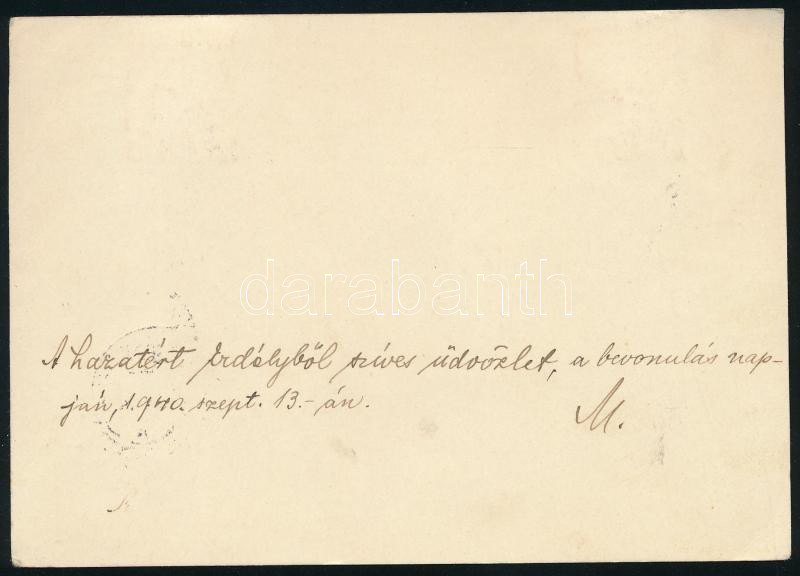 darabanth
A hazatért Erdélyből szíves üdvözlet, a bevonulás nap-
ján, 1940. szept. 13.-án.
M.